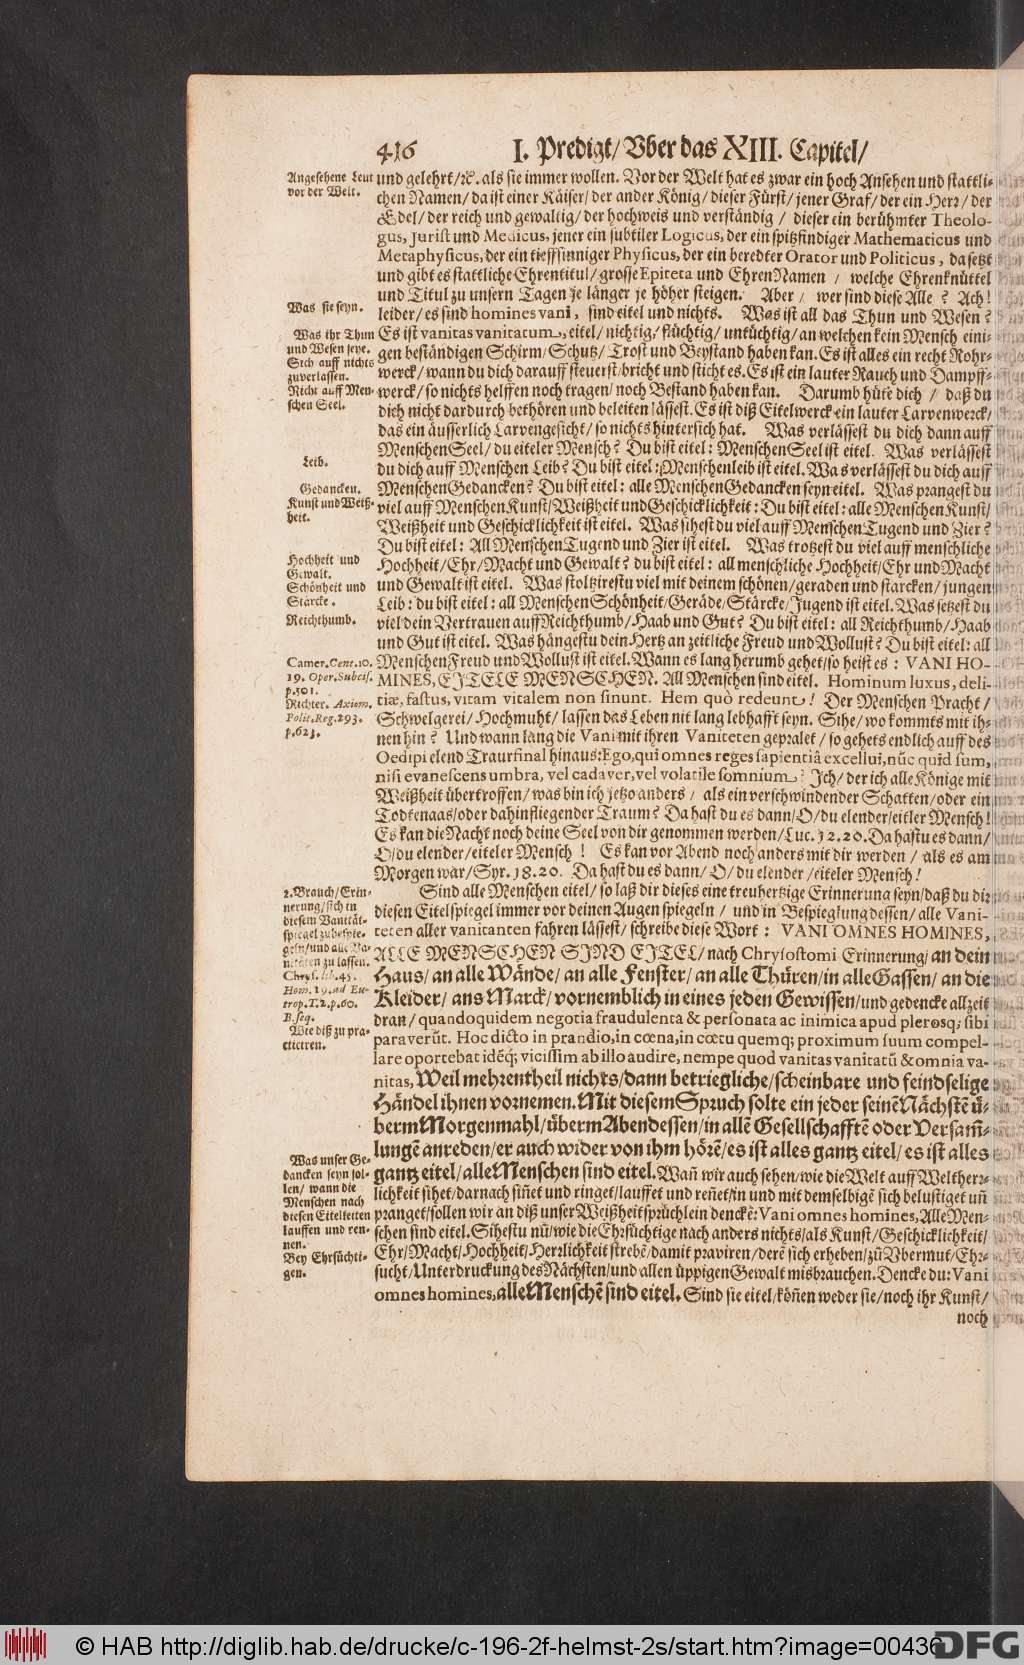 416 I. Predigt/ Vber das XIII. Capitel/
Angesehene Leut
vor der Welt.
und gelehrt/ꝛc. als sie immer wollen. Vor der Welt hat es zwar ein hoch Ansehen und stattli-
chen Namen/ da ist einer Käiser/ der ander König/ dieser Fürst/ jener Graf/ der ein Herr/ der
Edel/ der reich und gewaltig/ der hochweis und verständig/ dieser ein berühmter Theolo-
gus, Jurist und Medicus, jener ein subtiler Logicus, der ein spitzfindiger Mathematicus und
Metaphysicus, der ein tieffsinniger Physicus, der ein beredter Orator und Politicus, da setzt
und gibt es stattliche Ehrentitul/ grosse Epiteta und EhrenNamen / welche Ehrenknüttel
und Titul zu unsern Tagen je länger je höher steigen. Aber / wer sind diese Alle? Ach!
Was sie seyn.
leider/ es sind homines vani, sind eitel und nichts. Was ist all das Thun und Wesen?
Was ihr Thun
und Wesen seye.
Sich auff nichts
zuverlassen.
Nicht auff Men-
schen Seel.
Es ist vanitas vanitatum, eitel/ nichtig/ flüchtig/ untüchtig/ an welchen kein Mensch eini-
gen beständigen Schirm/ Schutz/ Trost und Beystand haben kan. Es ist alles ein recht Rohr-
werck/ wann du dich darauff steuerst/ bricht und sticht es. Es ist ein lauter Rauch und Dampff-
werck/ so nichts helffen noch tragen/ noch Bestand haben kan. Darumb hüte dich / daß du
dich nicht dardurch bethören und beleiten lässest. Es ist diß Eitelwerck ein lauter Larvenwerck/
das ein äusserlich Larvengesicht/ so nichts hintersich hat. Was verlässest du dich dann auff
MenschenSeel/ du eiteler Mensch? Du bist eitel: MenschenSeel ist eitel. Was verlässest
Leib.
du dich auff Menschen Leib? Du bist eitel: Menschenleib ist eitel. Was verlässest du dich auff
Gedancken.
MenschenGedancken? Du bist eitel: alle MenschenGedancken seyn eitel. Was prangest du
Kunst und Weiß-
heit.
viel auff MenschenKunst/ Weißheit und Geschicklichkeit: Du bist eitel: alle MenschenKunst/
Weißheit und Geschicklichkeit ist eitel. Was sihest du viel auff MenschenTugend und Zier?
Du bist eitel: All MenschenTugend und Zier ist eitel. Was trotzest du viel auff menschliche
Hochheit und
Gewalt.
Hochheit/ Ehr/ Macht und Gewalt? du bist eitel: all menschliche Hochheit/ Ehr und Macht
Schönheit und
Stärcke.
und Gewalt ist eitel. Was stoltzirestu viel mit deinem schönen/ geraden und starcken/ jungen
Leib: du bist eitel: all MenschenSchönheit/ Geräde/ Stärcke/ Jugend ist eitel. Was setzest du
Reichthumb.
viel dein Vertrauen auff Reichthumb/ Haab und Gut? Du bist eitel: all Reichthumb/ Haab
und Gut ist eitel. Was hängestu dein Hertz an zeitliche Freud und Wollust? Du bist eitel: all
Camer. Cent. 10.
19. Oper. Subcis.
p.501.
Richter. Axiom.
Polit. Reg. 293.
p.623.
MenschenFreud und Wollust ist eitel. Wann es lang herumb gehet/ so heist es: VANI HO-
MINES, EITELE MENSCHEN. All Menschen sind eitel. Hominum luxus, deli-
tiæ, fastus, vitam vitalem non sinunt. Hem quò redeunt! Der Menschen Pracht/
Schwelgerei/ Hochmuht/ lassen das Leben nit lang lebhafft seyn. Sihe/ wo kommts mit ih-
nen hin? Und wann lang die Vani mit ihren Vaniteten gepralet / so gehets endlich auff des
Oedipi elend Traurfinal hinaus: Ego, qui omnes reges sapientiâ excellui, nũc quid sum,
nisi evanescens umbra, vel cadaver, vel volatile somnium? Ich/ der ich alle Könige mit
Weißheit übertroffen/ was bin ich jetzo anders / als ein verschwindender Schatten/ oder ein
Todtenaas/ oder dahinfliegender Traum? Da hast du es dann/ O/ du elender/ eitler Mensch!
Es kan die Nacht noch deine Seel von dir genommen werden/ Luc. 12.20. Da hastu es dann/
O/ du elender/ eiteler Mensch! Es kan vor Abend noch anders mit dir werden / als es am
Morgen war/ Syr. 18.20. Da hast du es dann/ O/ du elender / eiteler Mensch!
2. Brauch/ Erin-
nerung/ sich in
diesem Vanität-
spiegel zubespie-
geln/ und alle Va-
nitäten zu lassen.
Chrys. lib. 45.
Hom. 19. ad Eu-
trop. T.2. p.60.
B. seq.
Sind alle Menschen eitel/ so laß dir dieses eine treuhertzige Erinnerung seyn/ daß du dir
diesen Eitelspiegel immer vor deinen Augen spiegeln / und in Bespieglung dessen/ alle Vani-
teten aller vanitanten fahren lässest/ schreibe diese Wort: VANI OMNES HOMINES,
ALLE MENSCHEN SIND EITEL/ nach Chrysostomi Erinnerung/ an dein
Haus/ an alle Wände/ an alle Fenster/ an alle Thüren/ in alle Gassen/ an die
Kleider/ ans Marck/ vornemblich in eines jeden Gewissen/ und gedencke allzeit
dran/ quandoquidem negotia fraudulenta & personata ac inimica apud plerosq; sibi
Wie diß zu pra-
cticiren.
paraverũt. Hoc dicto in prandio, in cœna, in cœtu quemq; proximum suum compel-
lare oportebat idẽq; vicissim ab illo audire, nempe quod vanitas vanitatũ & omnia va-
nitas, Weil mehrentheil nichts/ dann betriegliche/ scheinbare und feindselige
Händel ihnen vornemen. Mit diesem Spruch solte ein jeder seinẽ Nächstẽ ü-
berm Morgenmahl/ überm Abendessen/ in allẽ Gesellschafftẽ oder Versam̃-
lungẽ anreden/ er auch wider von ihm hörẽ/ es ist alles gantz eitel/ es ist alles
Was unser Ge-
dancken seyn sol-
len/ wann die
Menschen nach
diesen Eitelkeiten
lauffen und ren-
nen.
gantz eitel/ alle Menschen sind eitel. Wañ wir auch sehen/ wie die Welt auff Weltherr-
lichkeit sihet/ darnach siñet und ringet/ lauffet und reñet/ in und mit demselbigẽ sich belustiget uñ
pranget/ sollen wir an diß unser Weißheitsprüchlein denckẽ: Vani omnes homines, Alle Men-
schen sind eitel. Sihestu nũ/ wie die Ehrsüchtige nach anders nichts/ als Kunst/ Geschicklichkeit/
Bey Ehrsüchti-
gen.
Ehr/ Macht/ Hochheit/ Herrlichkeit strebẽ/ damit praviren/ derẽ sich erheben/ zũ Vbermut/ Ehr-
sucht/ Unterdruckung des Nächsten/ und allen üppigen Gewalt misbrauchen. Dencke du: Vani
omnes homines, alle Menschẽ sind eitel. Sind sie eitel/ köñen weder sie/ noch ihr Kunst/
noch
© HAB http://diglib.hab.de/drucke/c-196-2f-helmst-2s/start.htm?image=00436
DFG